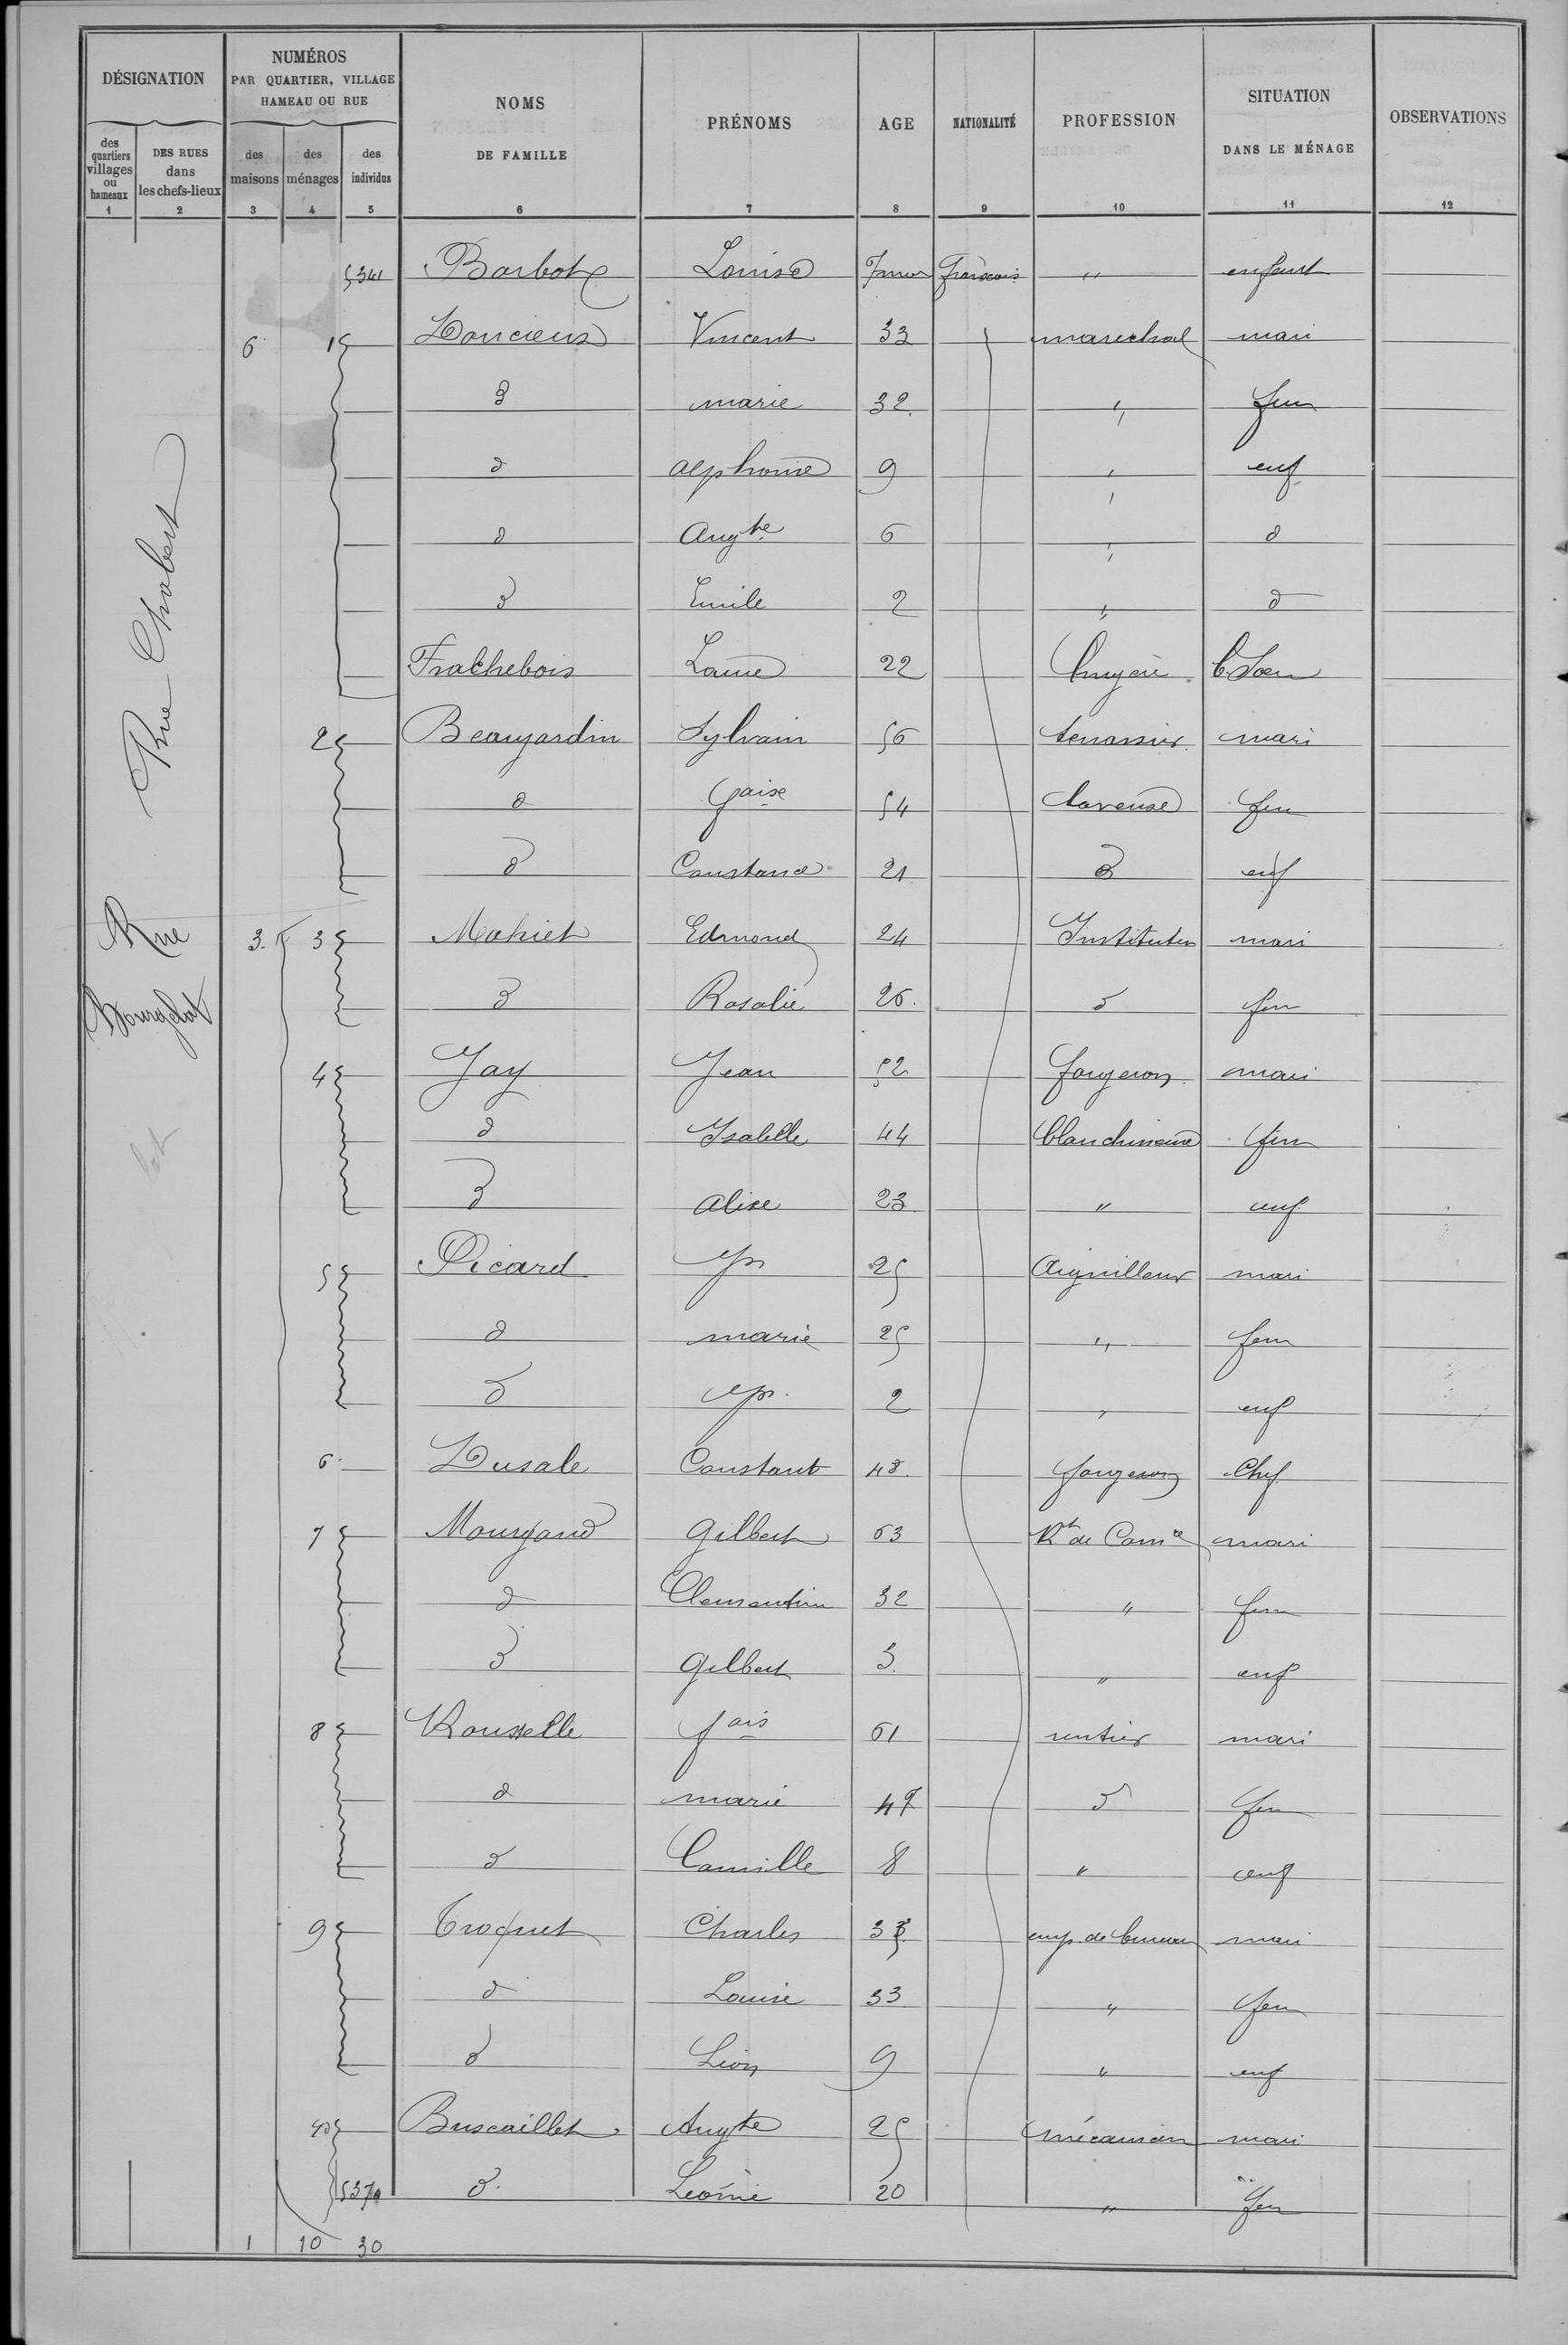 DÉSIGNATION NUMÉROS PAR QUARTIER, VILLAGE HAMEAU OU RUE NOMS DE FAMILLE PRÉNOMS AGE NATIONALITÉ PROFESSION SITUATION DANS LE MÉNAGE OBSERVATIONS
des quartiers villages ou hameaux DES RUES dans les chefs-lieux des maisons des ménages des individus
1 2 3 4 5 6 7 8 9 10 11 12
5341 Barbot Louise français " enfant
Rue Chabert
6 1 Vincent 33 marechal mari
d marie 32 " fem
d alphonse 9 " enf
d Augte 6 " d
d Emile 2 " d
Fratchebois 22 b. Soeur
2 Beaujardin Sylvain 56 terrassier mari
d fçaise 54 laveuse fem
d Constance 21 d enf
Rue Bourgelat
3 3 Mahiet Edmond 24 Instituteur mari
d Rosalie 26 d fem
4 Jay Jean 52 forgeron mari
d Isabelle 44 blanchisseuse fem
d alice 23 " enf
5 Picard 25 Aiguilleur mari
d marie 25 " fem
d 2 " enf
6 Dusale Constant 48 forgeron Chef
7 Gilbert 63 mari
d Clementine 32 " fem
d Gilbert 3 " enf
8 Rousselle fçais 61 rentier mari
d marie 47 d fem
d Camille 8 " enf
9 Troquet Charles emp. de bureau mari
d Louise 33 " fem
d Léon 9 " enf
10 Buscaillet Augte 25 mécanicien mari
5370 d Léonie 20 " fem
1 10 30